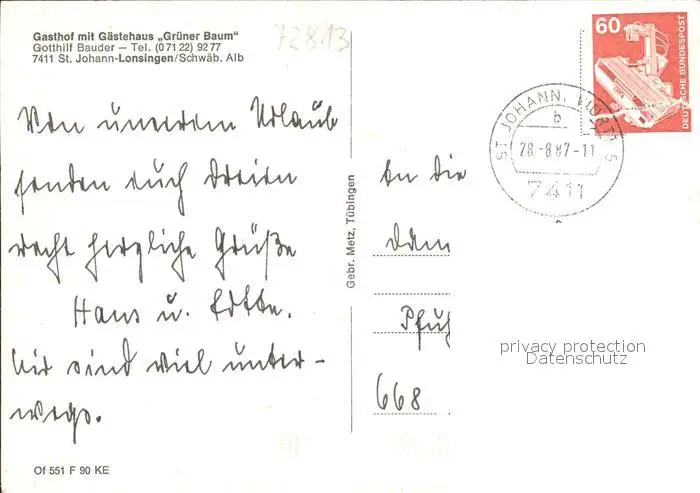 Gasthof mit Gästehaus „Grüner Baum"
Gotthilf Bauder – Tel. (0 71 22) 92 77
7411 St. Johann-Lonsingen/Schwäb. Alb
72813
Von unserem Urlaub
senden euch Dreien
recht herzliche Grüße
Hans u.
Wir sind viel unter-
wegs.
Of 551 F 90 KE
Gebr. Metz, Tübingen
60
DEUTSCHE BUNDESPOST
ST JOHANN, WÜRTT 5
b
28.-8.87-11
7411
An die
Dam
Pfuh
668
privacy protection
Datenschutz